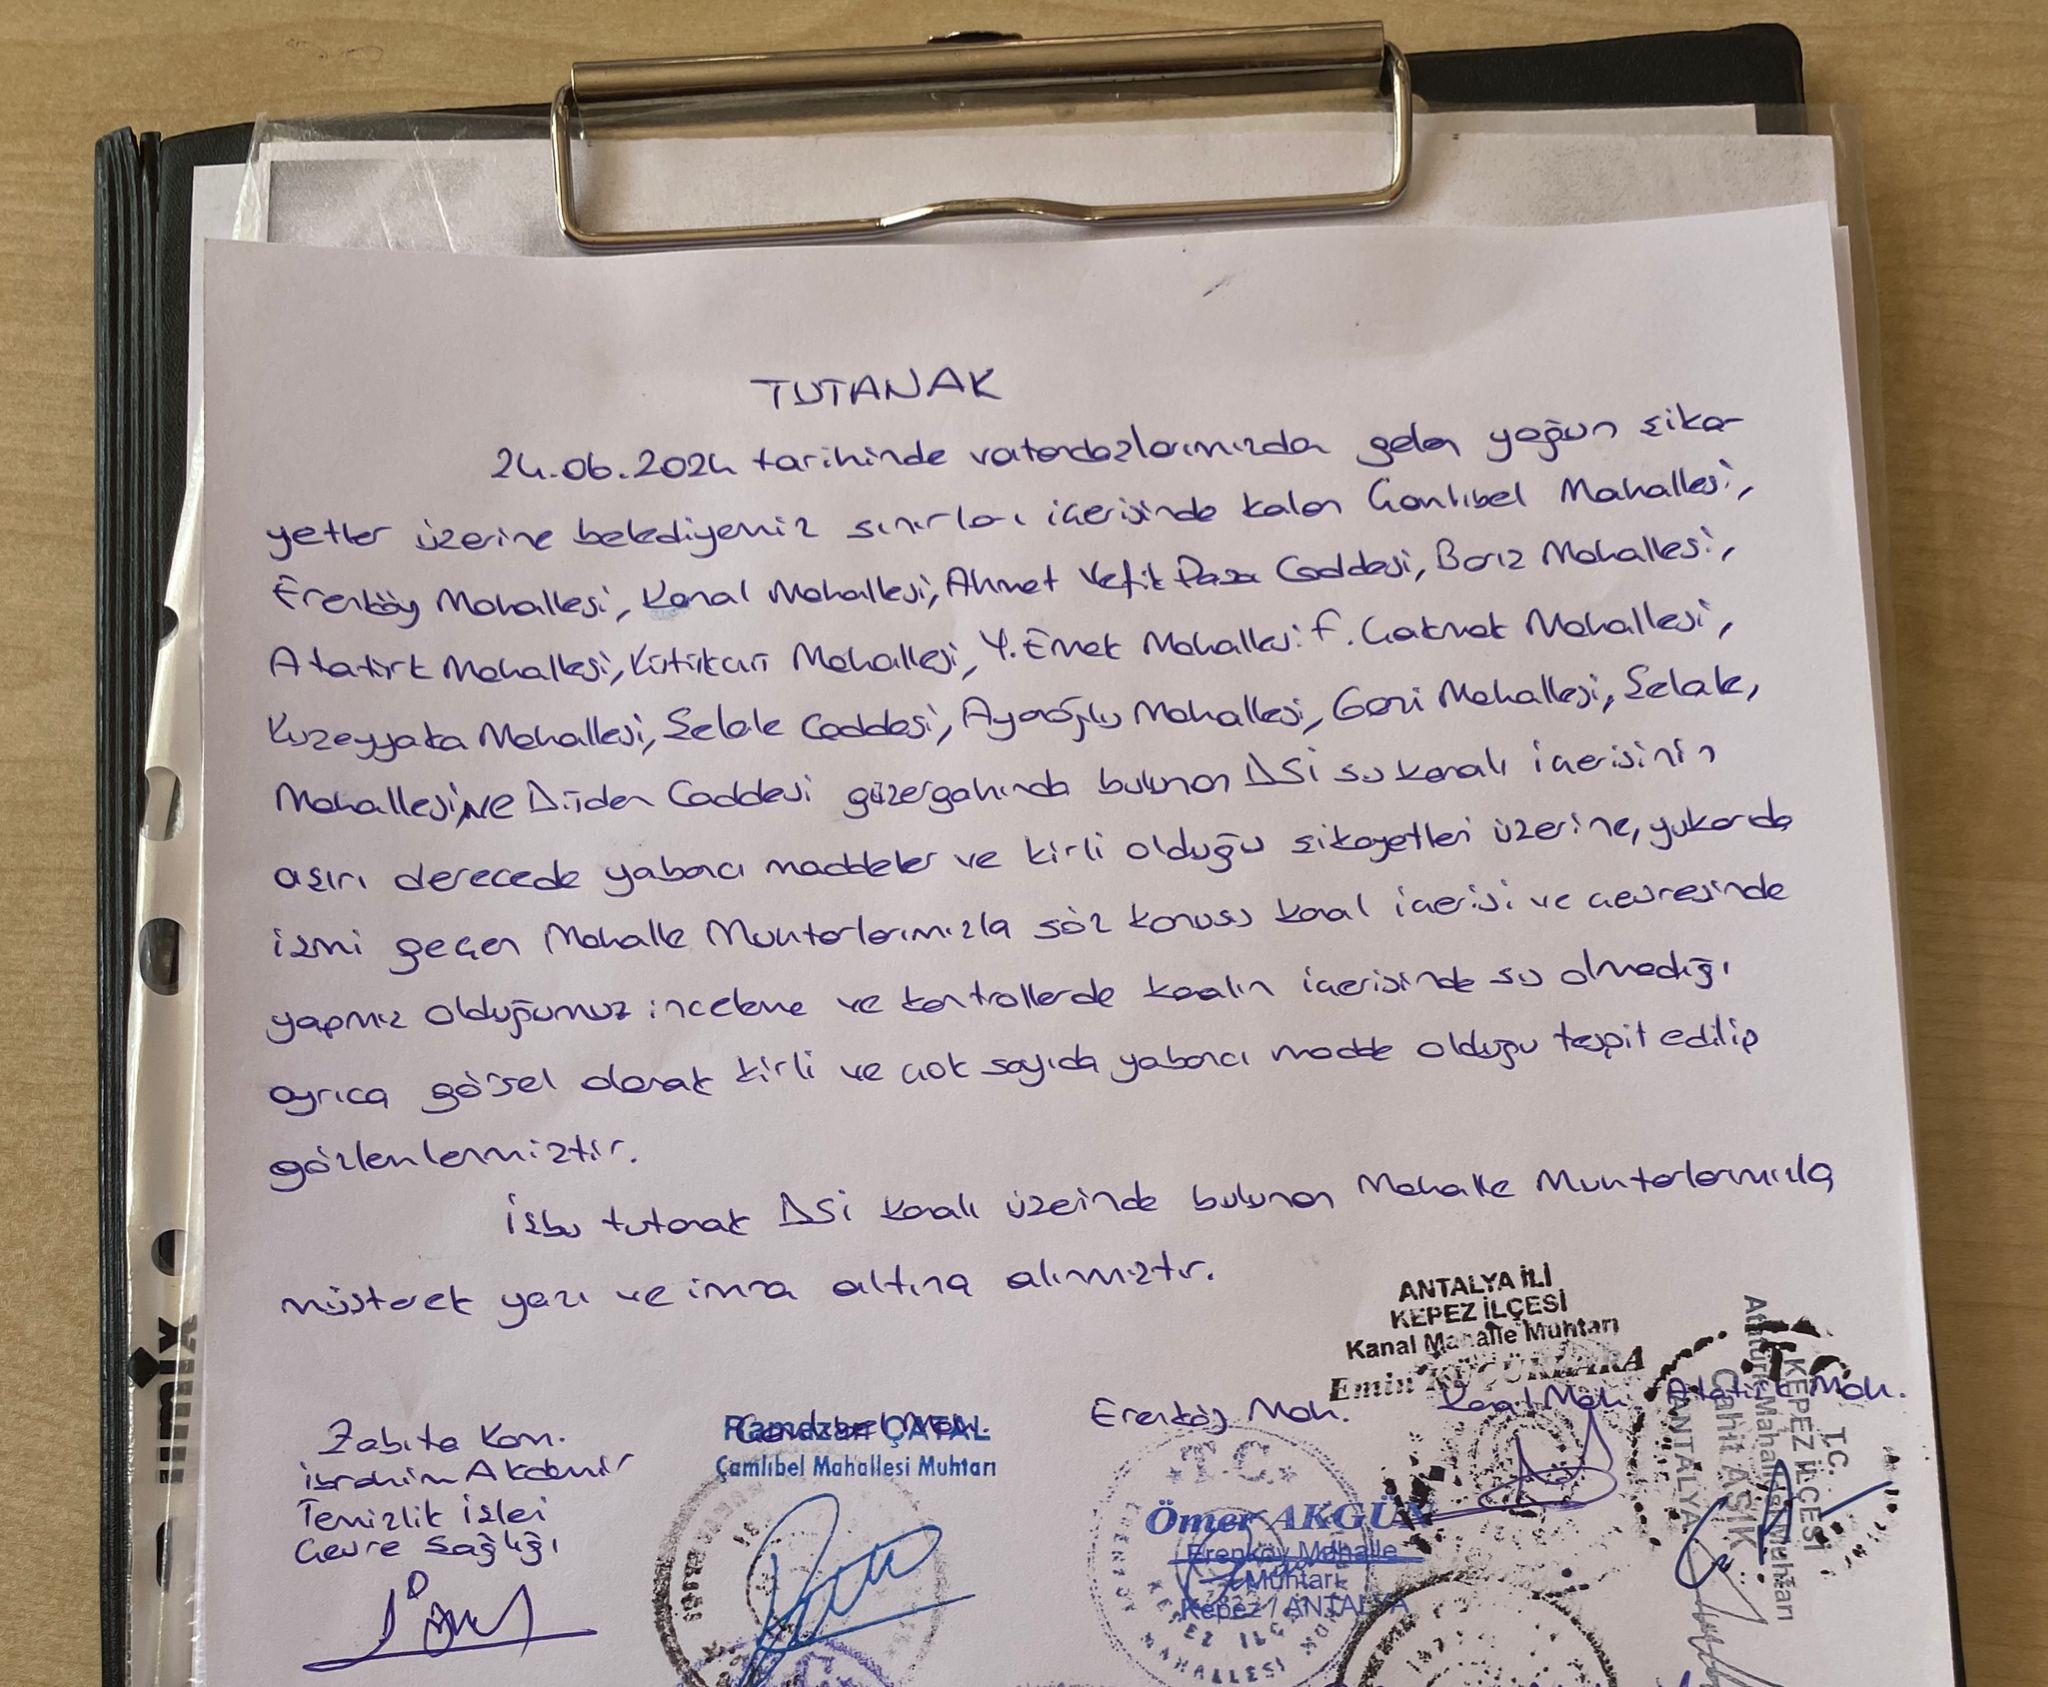 TUTANAK
24.06.2024 tarihinde vatandaşlarımızda gelen yoğun şika-
yetler üzerine belediyemiz sınırları içerisinde kalan Çamlıbel Mahallesi,
Erenköy Mahallesi, Kanal Mahallesi, Ahmet Vefik Paşa Caddesi, Barış Mahallesi,
Atatürk Mahallesi, Kütükçü Mahallesi, Y. Emek Mahallesi F. Çakmak Mahallesi,
Kuzeyyaka Mahallesi, Şelale Caddesi, Ayanoğlu Mahallesi, Gazi Mahallesi, Şelale,
Mahallesi, ve Düden Caddesi güzergahında bulunan DSİ su kanalı içerisinin
aşırı derecede yabancı maddeler ve kirli olduğu şikayetleri üzerine, yukarıda
ismi geçen Mahalle Muhtarlarımızla söz konusu kanal içerisi ve çevresinde
yapmış olduğumuz inceleme ve kontrollerde kanalın içerisinde su olmadığı
ayrıca görsel olarak kirli ve çok sayıda yabancı madde olduğu tespit edilip
gözlenlenmiştir.
İşbu tutanak DSİ kanalı üzerinde bulunan Mahalle Muhtarlarımızla
müşterek yazı ve imza altına alınmıştır.
ANTALYA İLİ
KEPEZ İLÇESİ
Kanal Mahalle Muhtarı
Emin KÜÇÜKKARA
Zabıta Kom.
İbrahim Akdemir
Temizlik İşleri
Çevre Sağlığı
Çamlıbel Mah.
Ramazan ÇATAL
Çamlıbel Mahallesi Muhtarı
Erenköy Mah.
T.C.
Ömer AKGÜN
Erenköy Mahalle
Muhtarı
Kepez / ANTALYA
Kanal Mah.
Atatürk Mah.
T.C.
KEPEZ İLÇESİ
Atatürk Mahallesi Muhtarı
Cahit AŞIK
ANTALYA
umix